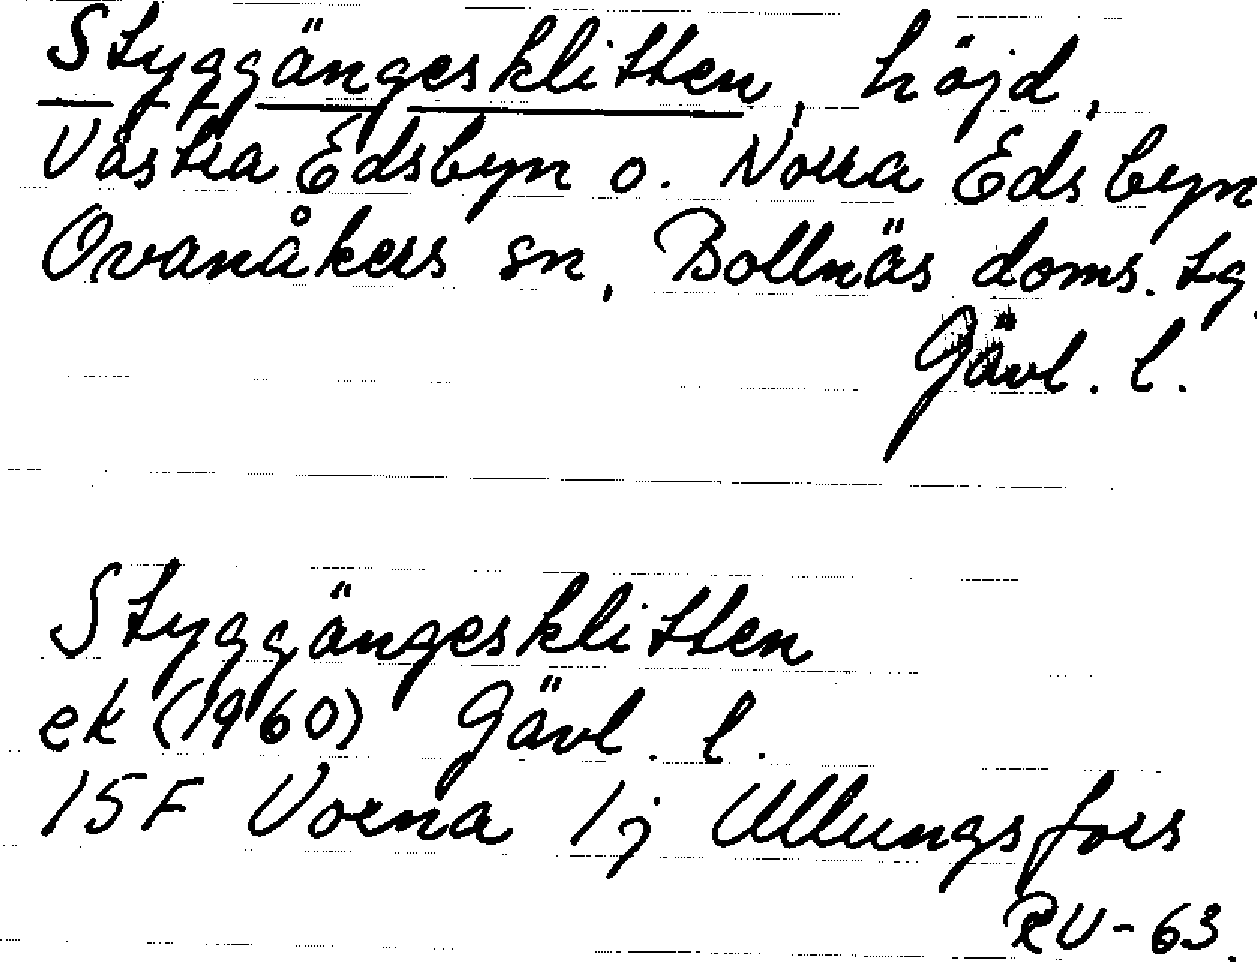 Styggängesklitten, höjd,
Västra Edsbyn o. Norra Edsbyn
Ovanåkers sn, Bollnäs doms. tg.
Gävl. l.
Styggängesklitten
ek (1960) Gävl. l.
15F Voxna 1j Ullungsfors
RU-63.